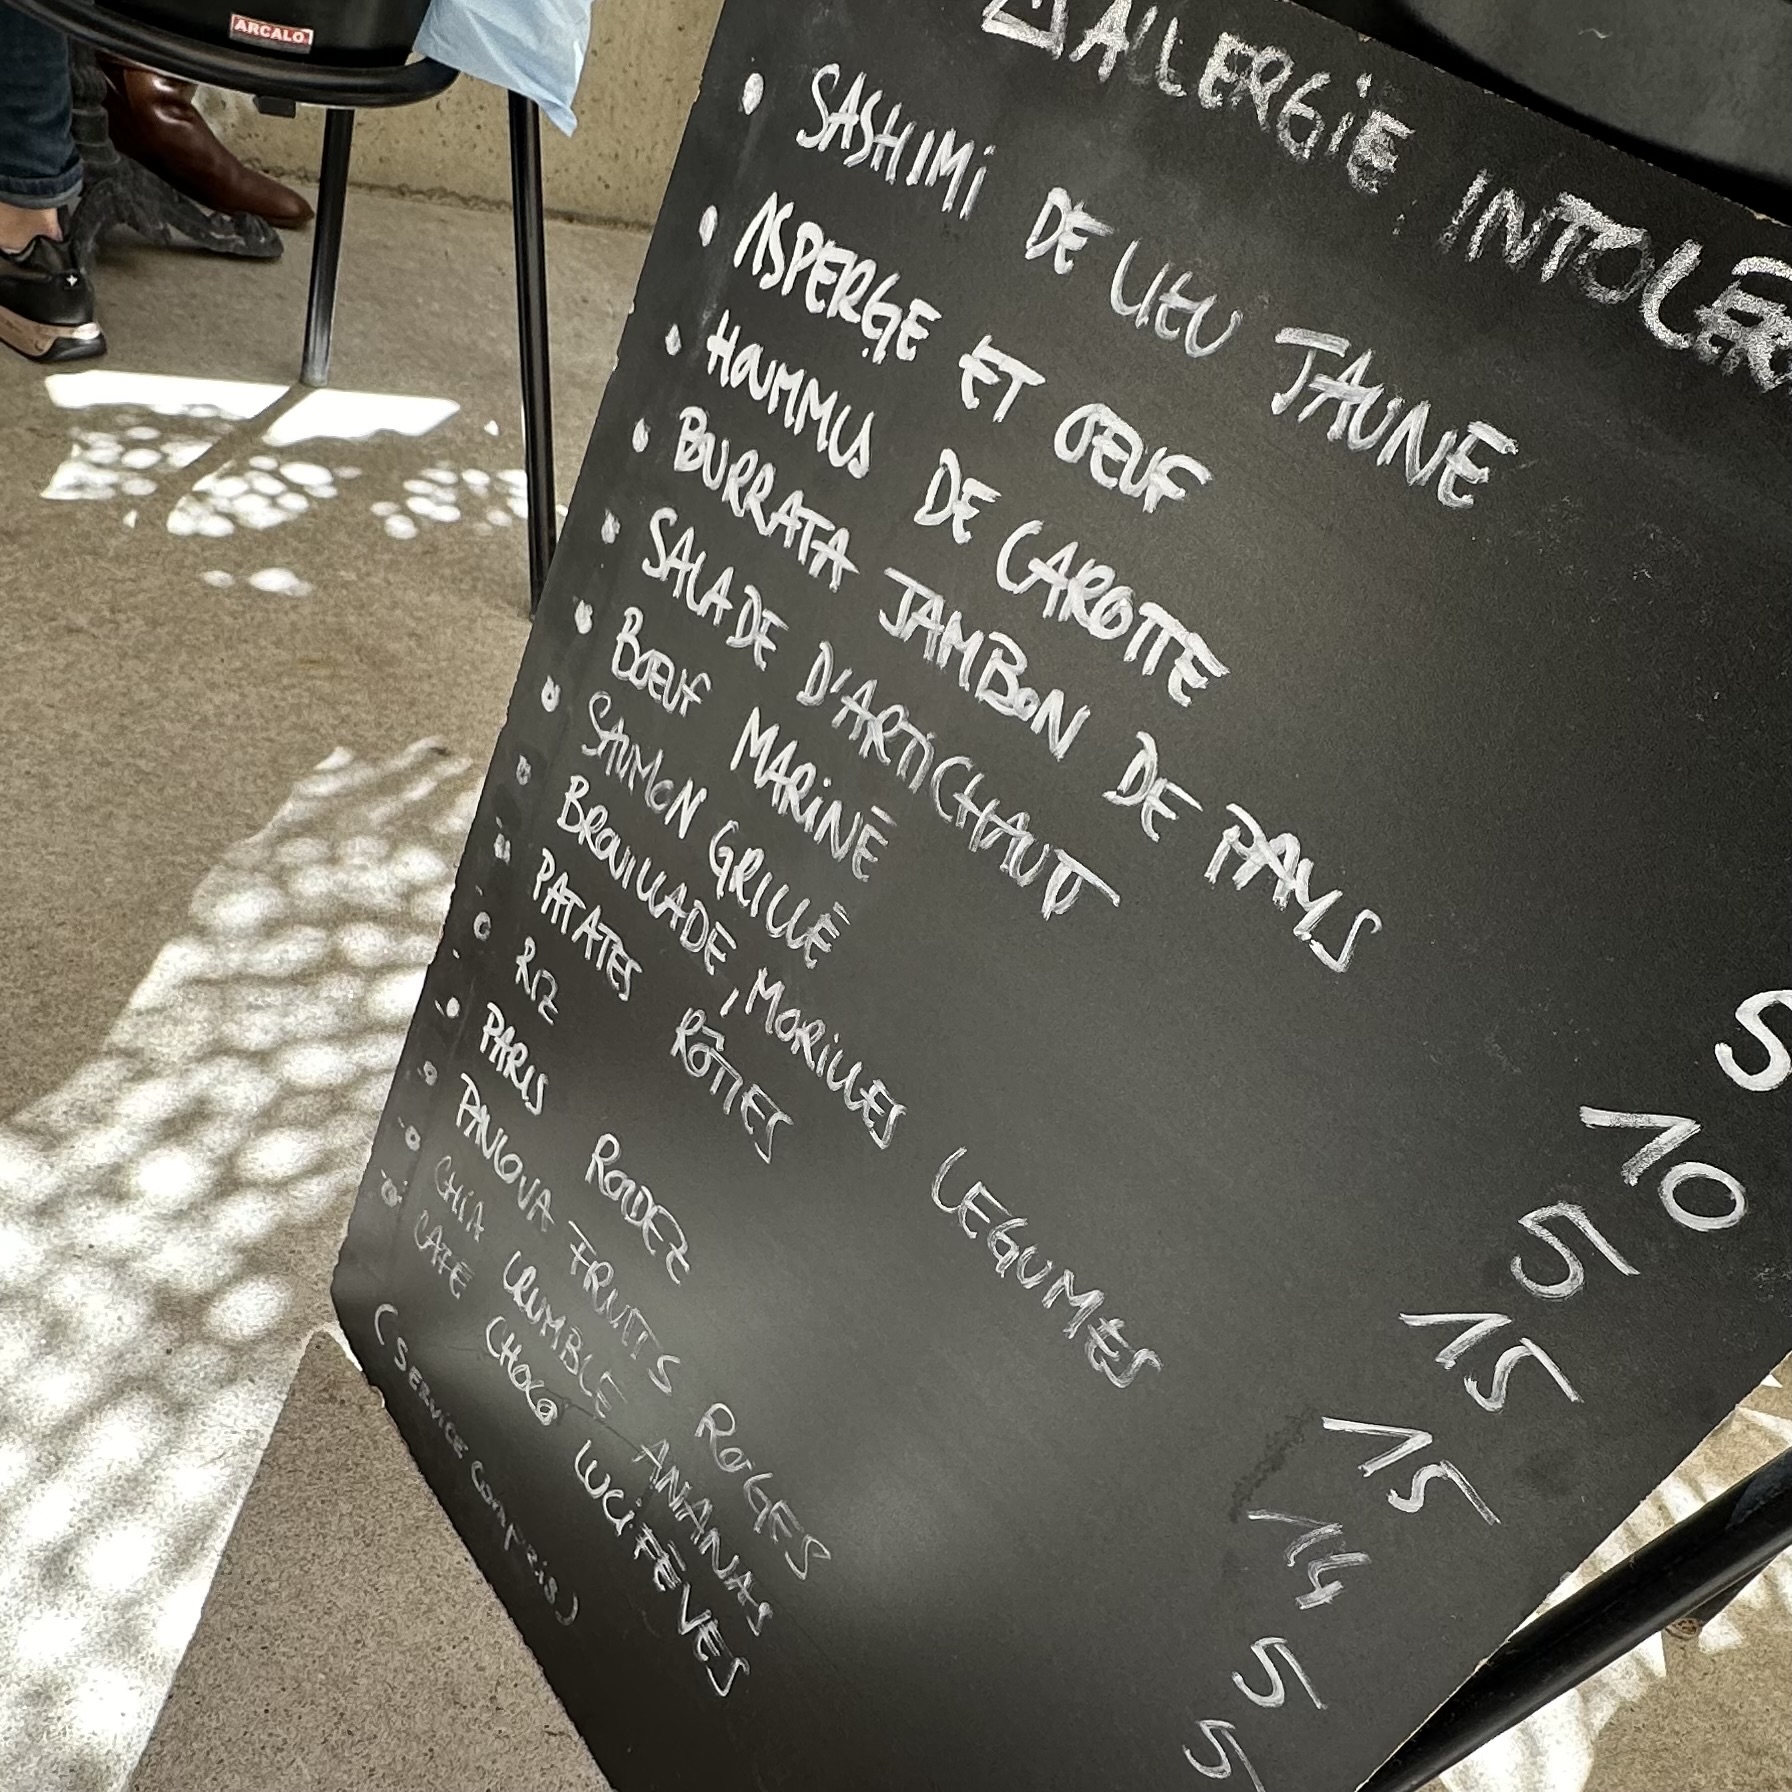 ARCALO
⚠ ALLERGIE INTOLÉR
• SASHIMI DE LIEU JAUNE
• ASPERGE ET ŒUF
• HOUMMUS DE CAROTTE 5
• BURRATA JAMBON DE PAYS 10
• SALADE D'ARTICHAUT 5
• BŒUF MARINÉ 15
• SAUMON GRILLÉ 15
• BROUILLADE, MORILLES LEGUMES 14
• PATATES RÔTIES 5
• RIZ 5
• PARIS RODEZ
• PAVLOVA FRUITS ROUGES
• CHIA CRUMBLE ANANAS
• CAFE CHOCO LUCIFÈVES
( SERVICE COMPRIS )